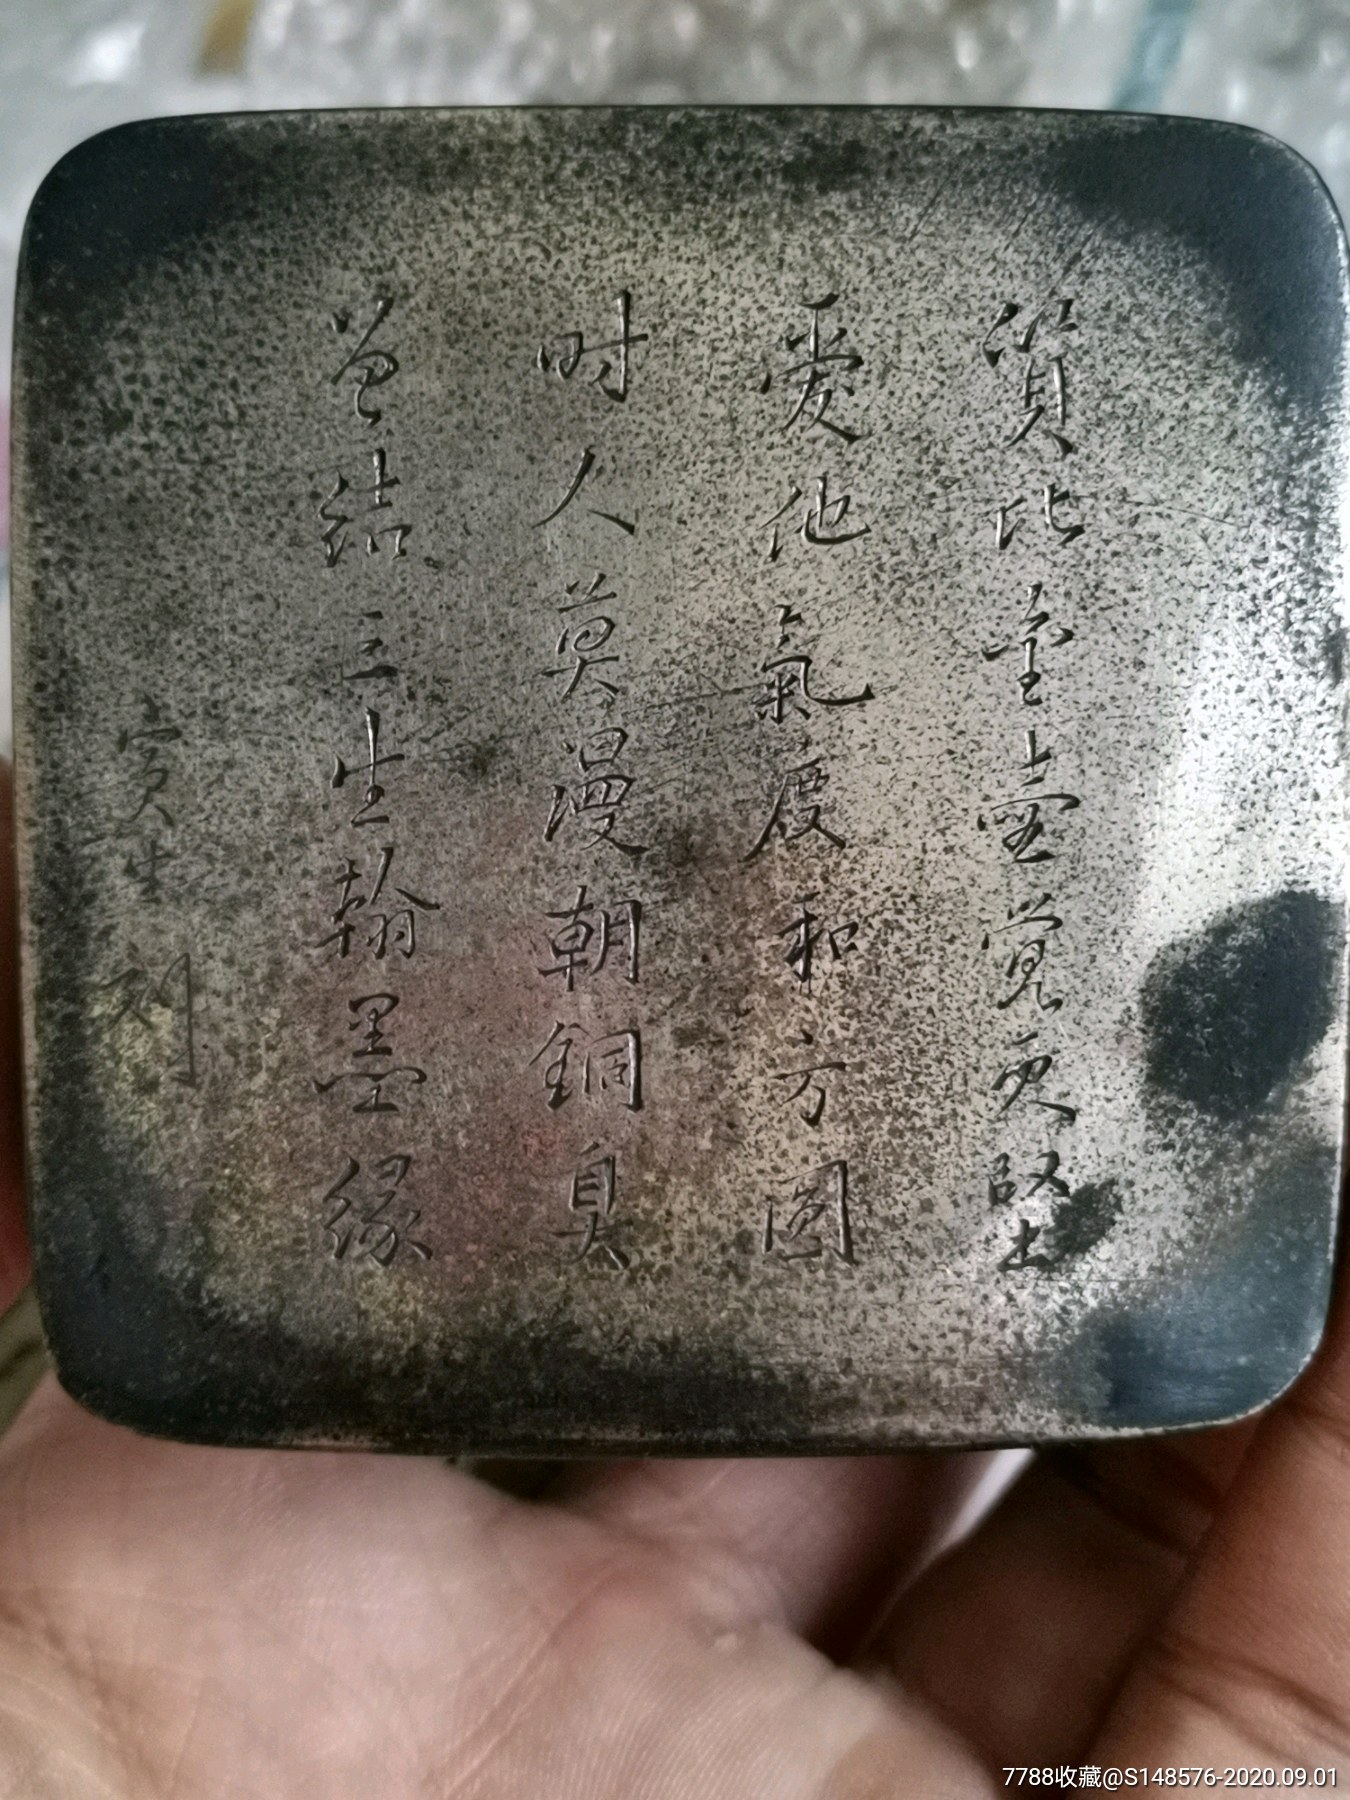 質比金壺覺更堅
愛他氣度和方圓
时人莫漫朝銅臭
曾結三生翰墨緣
寅生刻
7788收藏@S148576-2020.09.01